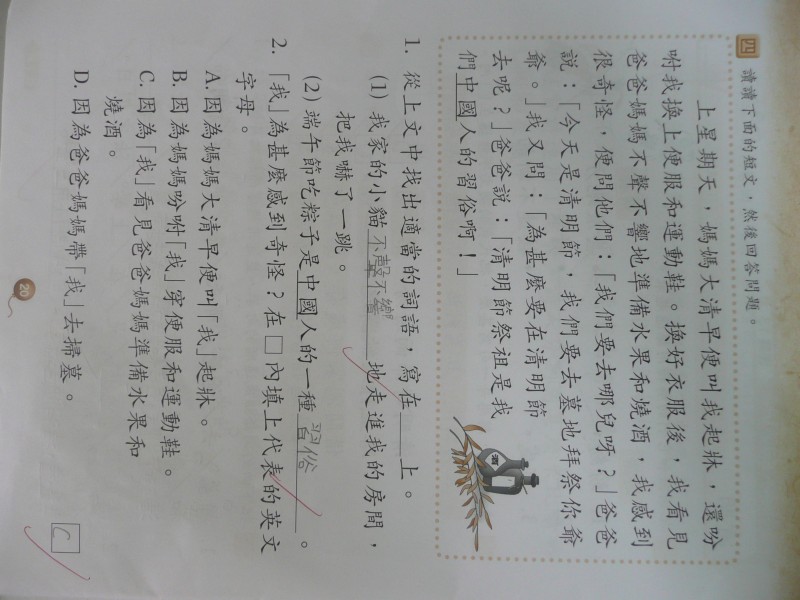 四 讀讀下面的短文，然後回答問題。
上星期天，媽媽大清早便叫我起牀，還吩
咐我換上便服和運動鞋。換好衣服後，我看見
爸爸媽媽不聲不響地準備水果和燒酒，我感到
很奇怪，便問他們：「我們要去哪兒呀？」爸爸
說：「今天是清明節，我們要去墓地拜祭你爺
爺。」我又問：「為甚麼要在清明節
去呢？」爸爸說：「清明節祭祖是我
們中國人的習俗啊！」
酒
1. 從上文中找出適當的詞語，寫在____上。
(1) 我家的小貓不聲不響地走進我的房間，
把我嚇了一跳。
(2) 端午節吃粽子是中國人的一種習俗。
2. 「我」為甚麼感到奇怪？在□內填上代表的英文
字母。
A. 因為媽媽大清早便叫「我」起牀。
B. 因為媽媽吩咐「我」穿便服和運動鞋。
C. 因為「我」看見爸爸媽媽準備水果和
燒酒。
D. 因為爸爸媽媽帶「我」去掃墓。
C
20